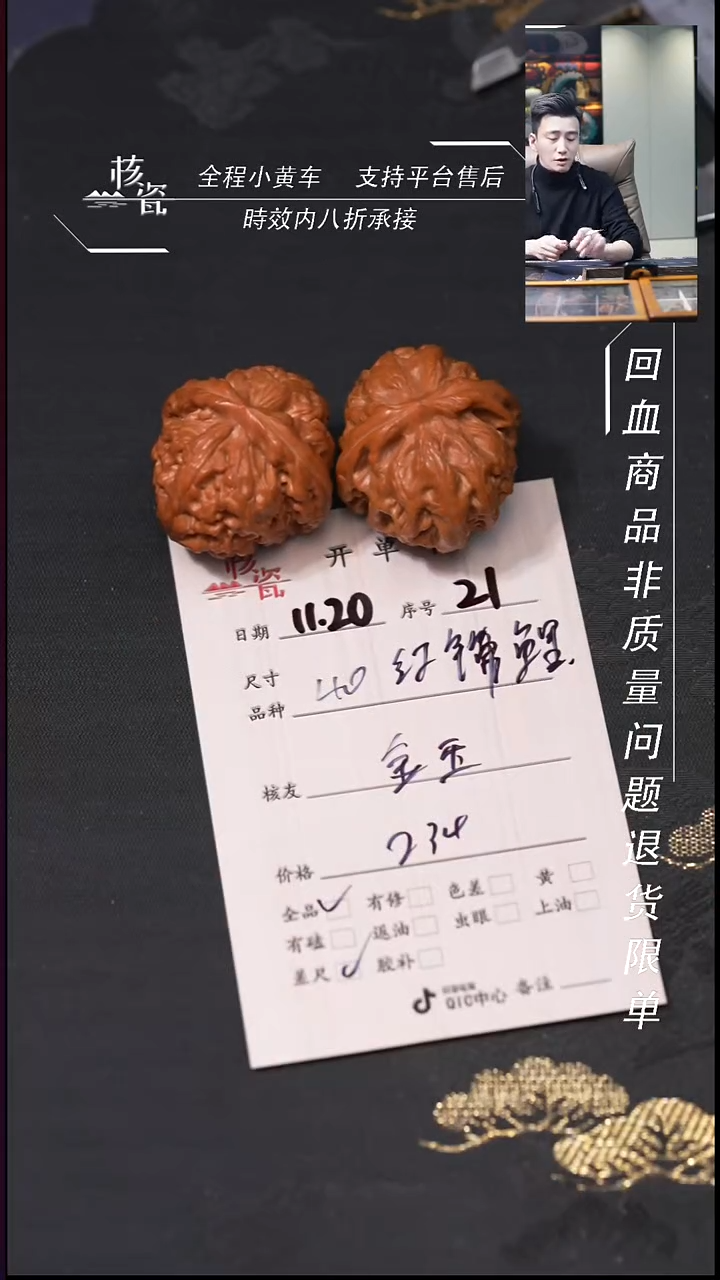 核瓷
全程小黄车 支持平台售后
時效内八折承接
回血商品非质量问题退货限单
核瓷
开单
日期 11.20 序号 21
尺寸
品种 40 红锦鲤
核友 金玉
价格 234
全品 有修 色差 黄
有磕 退油 虫眼 上油
差尺 胶补
QIC中心 备注